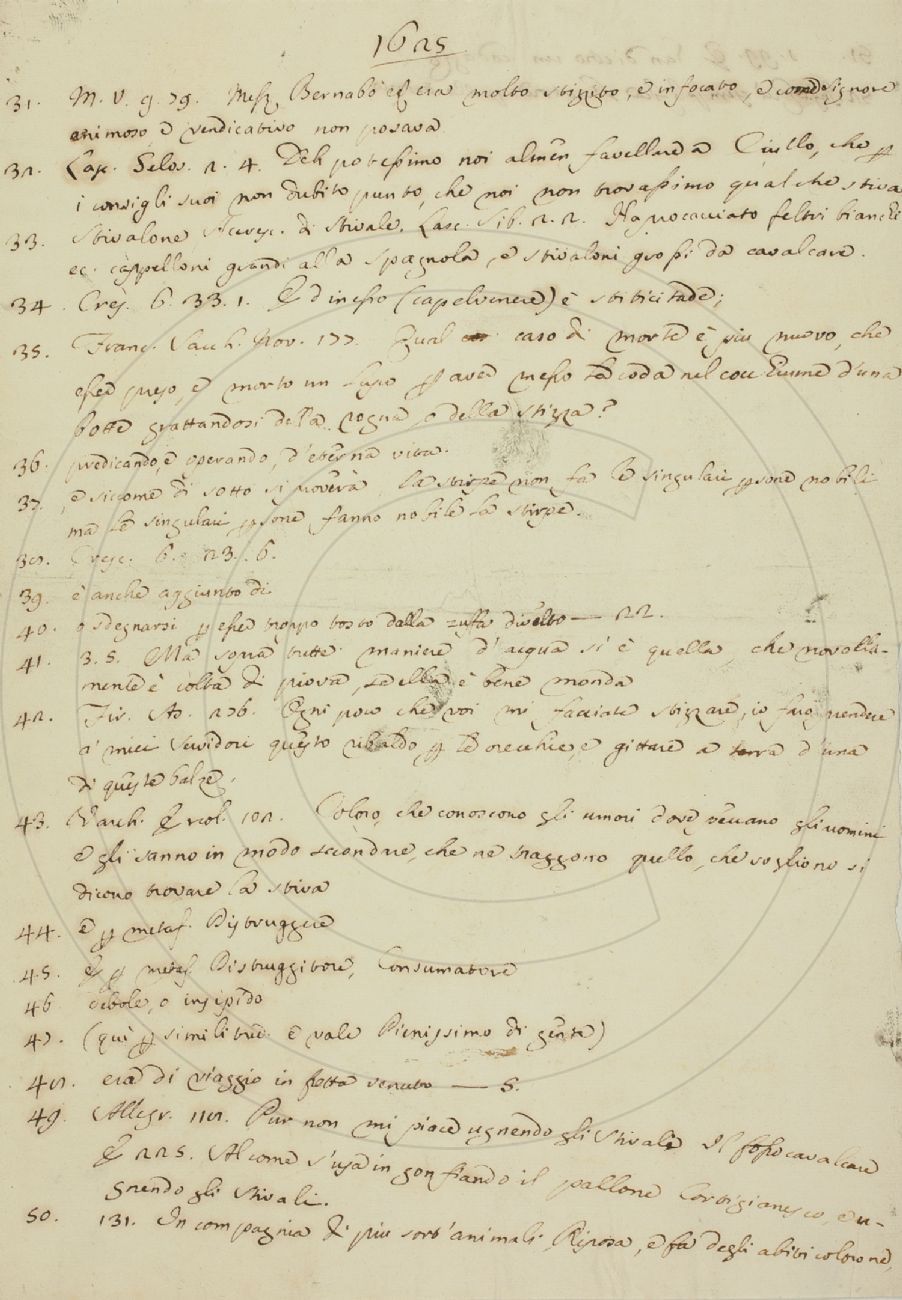 1625
31. M. V. 9. 79. Mess. Bernabò era molto stizzito, e infocato, e come signore
animoso e vendicativo non posava
32. Lasc. Gelos. 2. 4. Deh potessimo noi almen favellare a Ciullo, che p
i consigli suoi non dubito punto, che noi non trovassimo qualche stiva
33. Stivalone Accresc. di Stivale. Lasc. Sib. 2. 2. Ha procacciato feltri bianchi
ec. cappelloni grandi alla spagnola, e stivaloni grossi da cavalcare.
34. Cresc. 6. 33. 1. E d in esso (capelvenere) è stiticitade;
35. Franc. Sacch. Nov. 177. Qual caso di morte è più nuovo, che
esser preso, e morto un Lupo p aver messo la coda nel cocchiume d'una
botte grattandosi della rogna, o della stizza?
36. predicando, e operando, d'eterna vita.
37. e siccome di sotto si proverà, la stirpe non fa le singulari psone nobili
ma le singulari psone fanno nobile la stirpe.
38. Cresc. 6. 23. 6.
39. è anche aggiunto di
40. o sdegnarsi p esser troppo tosto dalla zuffa divelto — 22.
41. 3. 5. Ma sopra tutte maniere d'acqua si è quella, che novella-
mente è colta di piova, se ella è bene monda
42. Fir. As. 276. Ogni poco che voi mi facciate stizzare, io farò prendere
a' miei Servidori questo ribaldo p le orecchie, e gittare a terra d'una
di queste balze.
43. Varch. Ercol. 102. Coloro, che conoscono gli umori dove peccano gli uomini
e gli sanno in modo secondare, che ne traggono quello, che vogliono si
dicono trovare la stiva
44. e p metaf. Distruggere
45. E p metaf. Distruggitore, Consumatore
46 debole, o insipido
47. (qui p similitud. e vale Pienissimo di gente)
48. era di viaggio in fretta venuto — 5.
49. Allegr. 118. Pur non mi piace ugnendo gli Stivali Il fosso cavalcare
E 225. Al come s'usa in gonfiando il pallone Cortigianesco, e u-
gnendo gli Stivali.
50. 131. In compagnia di più sort'animali Riposa, e fa degli abiti coltrone,